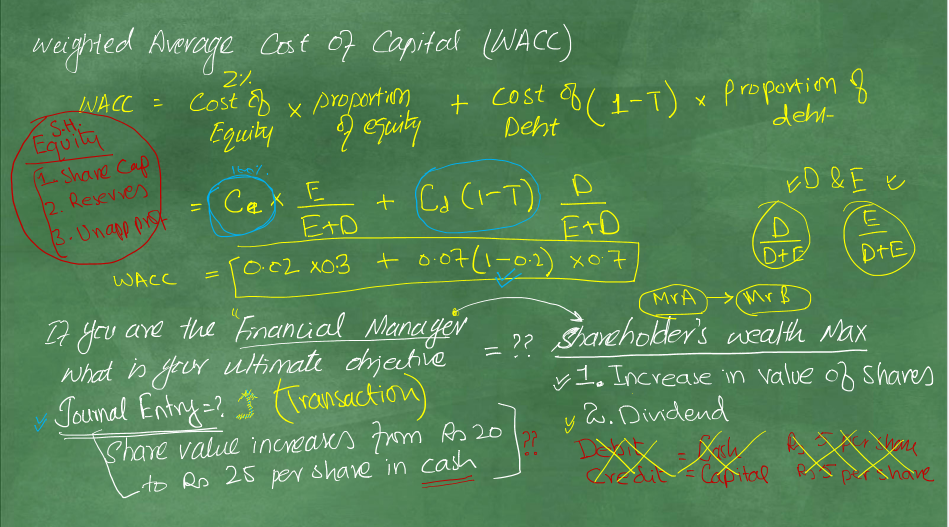 Weighted Average Cost of Capital (WACC)
2%
WACC = Cost of Equity × proportion of equity + Cost of Debt (1-T) × Proportion of debt
S.H.
Equity
1. Share Cap
2. Reserves
3. Unapp prof.
= Ce × E/E+D + Cd (1-T) D/E+D
✓D & E ✓
D/D+E
E/D+E
WACC = 0.02 × 0.3 + 0.07(1-0.2) × 0.7
Mr A → Mr B
If you are the "Financial Manager"
what is your ultimate objective = ??
Shareholder's wealth Max
✓ 1. Increase in value of shares
✓ 2. Dividend
✓ Journal Entry=? (Transaction)
Share value increases from Rs 20
to Rs 25 per share in cash ??
Debit = Cash Rs 5 per share
Credit = Capital Rs 5 per share